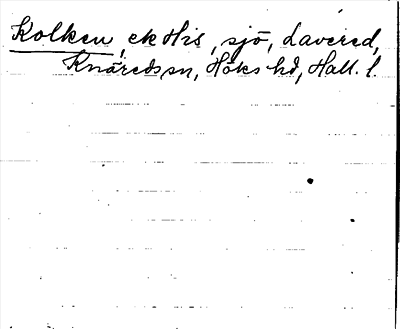 Kolken, ek His, sjö, Lavered,
Knäreds sn, Höks hd, Hall. l.